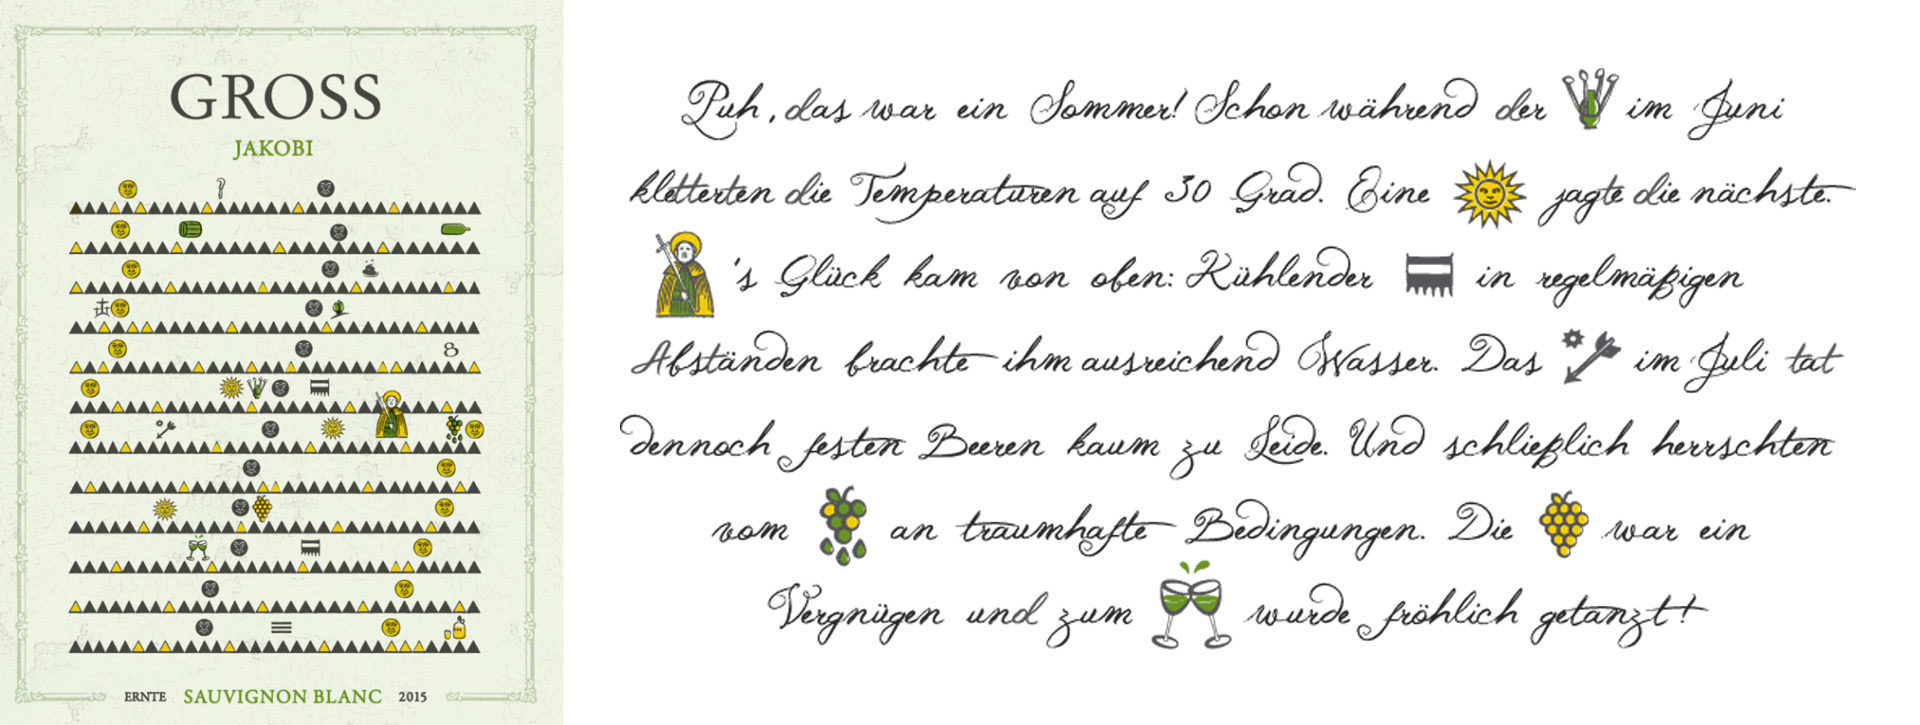 GROSS
JAKOBI
8
ERNTE SAUVIGNON BLANC 2015
Puh, das war ein Sommer! Schon während der im Juni
kletterten die Temperaturen auf 30 Grad. Eine jagte die nächste.
's Glück kam von oben: Kühlender in regelmäßigen
Abständen brachte ihm ausreichend Wasser. Das im Juli tat
dennoch festen Beeren kaum zu Leide. Und schließlich herrschten
vom an traumhafte Bedingungen. Die war ein
Vergnügen und zum wurde fröhlich getanzt!